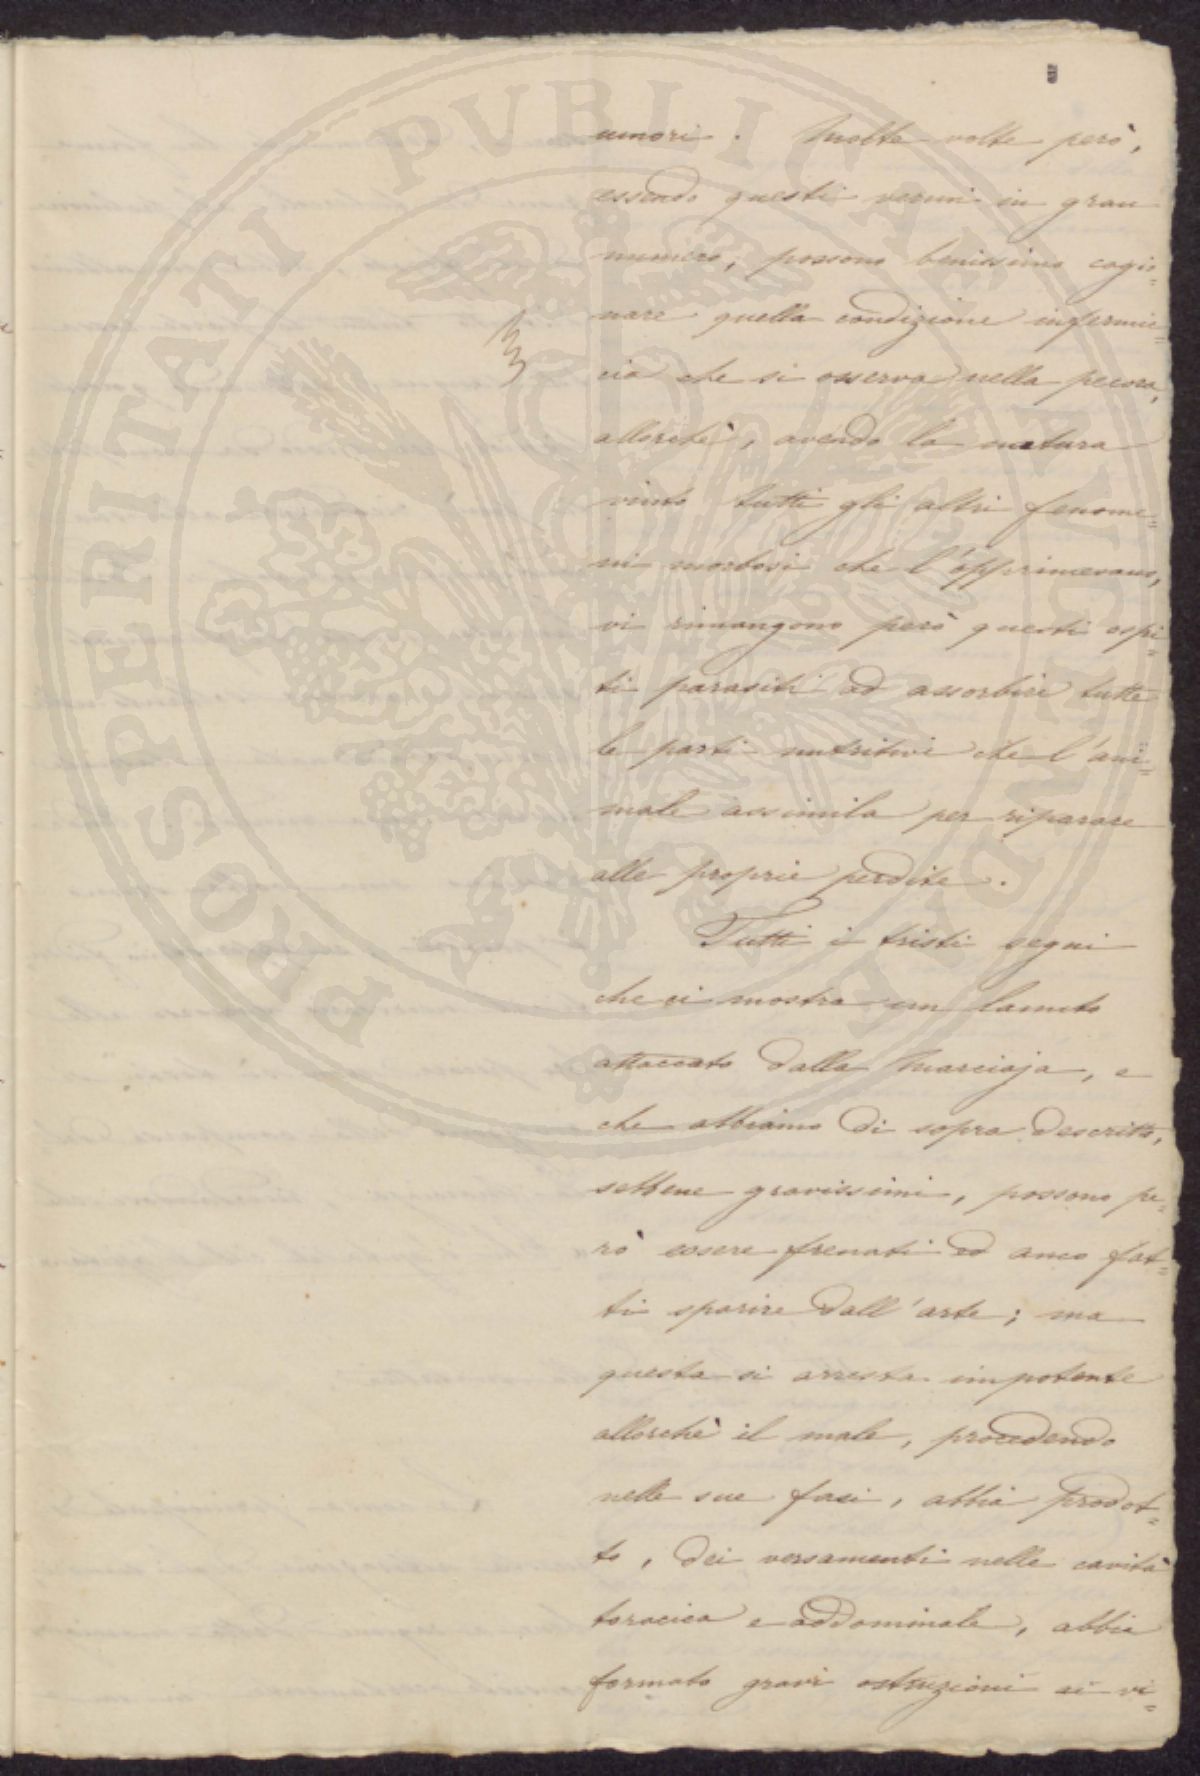 umori. Molte volte però,
essendo questi vermi in gran
numero, possono benissimo cagio=
nare quella condizione infermic=
cia che si osserva nella pecora,
allorchè, avendo la natura
vinto tutti gli altri fenome=
ni morbosi che l'opprimevano,
vi rimangono però questi ospi=
ti parasiti ad assorbire tutte
le parti nutritive che l'ani=
male assimila per riparare
alle proprie perdite.
Tutti i tristi segni
che ci mostra un lanuto
attaccato dalla Marciaja, e
che abbiamo di sopra descritto,
sebbene gravissimi, possono pe=
rò essere frenati ed anco fat=
ti sparire dall'arte; ma
questa si arresta impotente
allorchè il male, procedendo
nelle sue fasi, abbia prodot=
to, dei versamenti nelle cavità
toracica e addominale, abbia
formato gravi ostruzioni ai vi=
PROSPERITATI PUBLICAE AUGENDAE